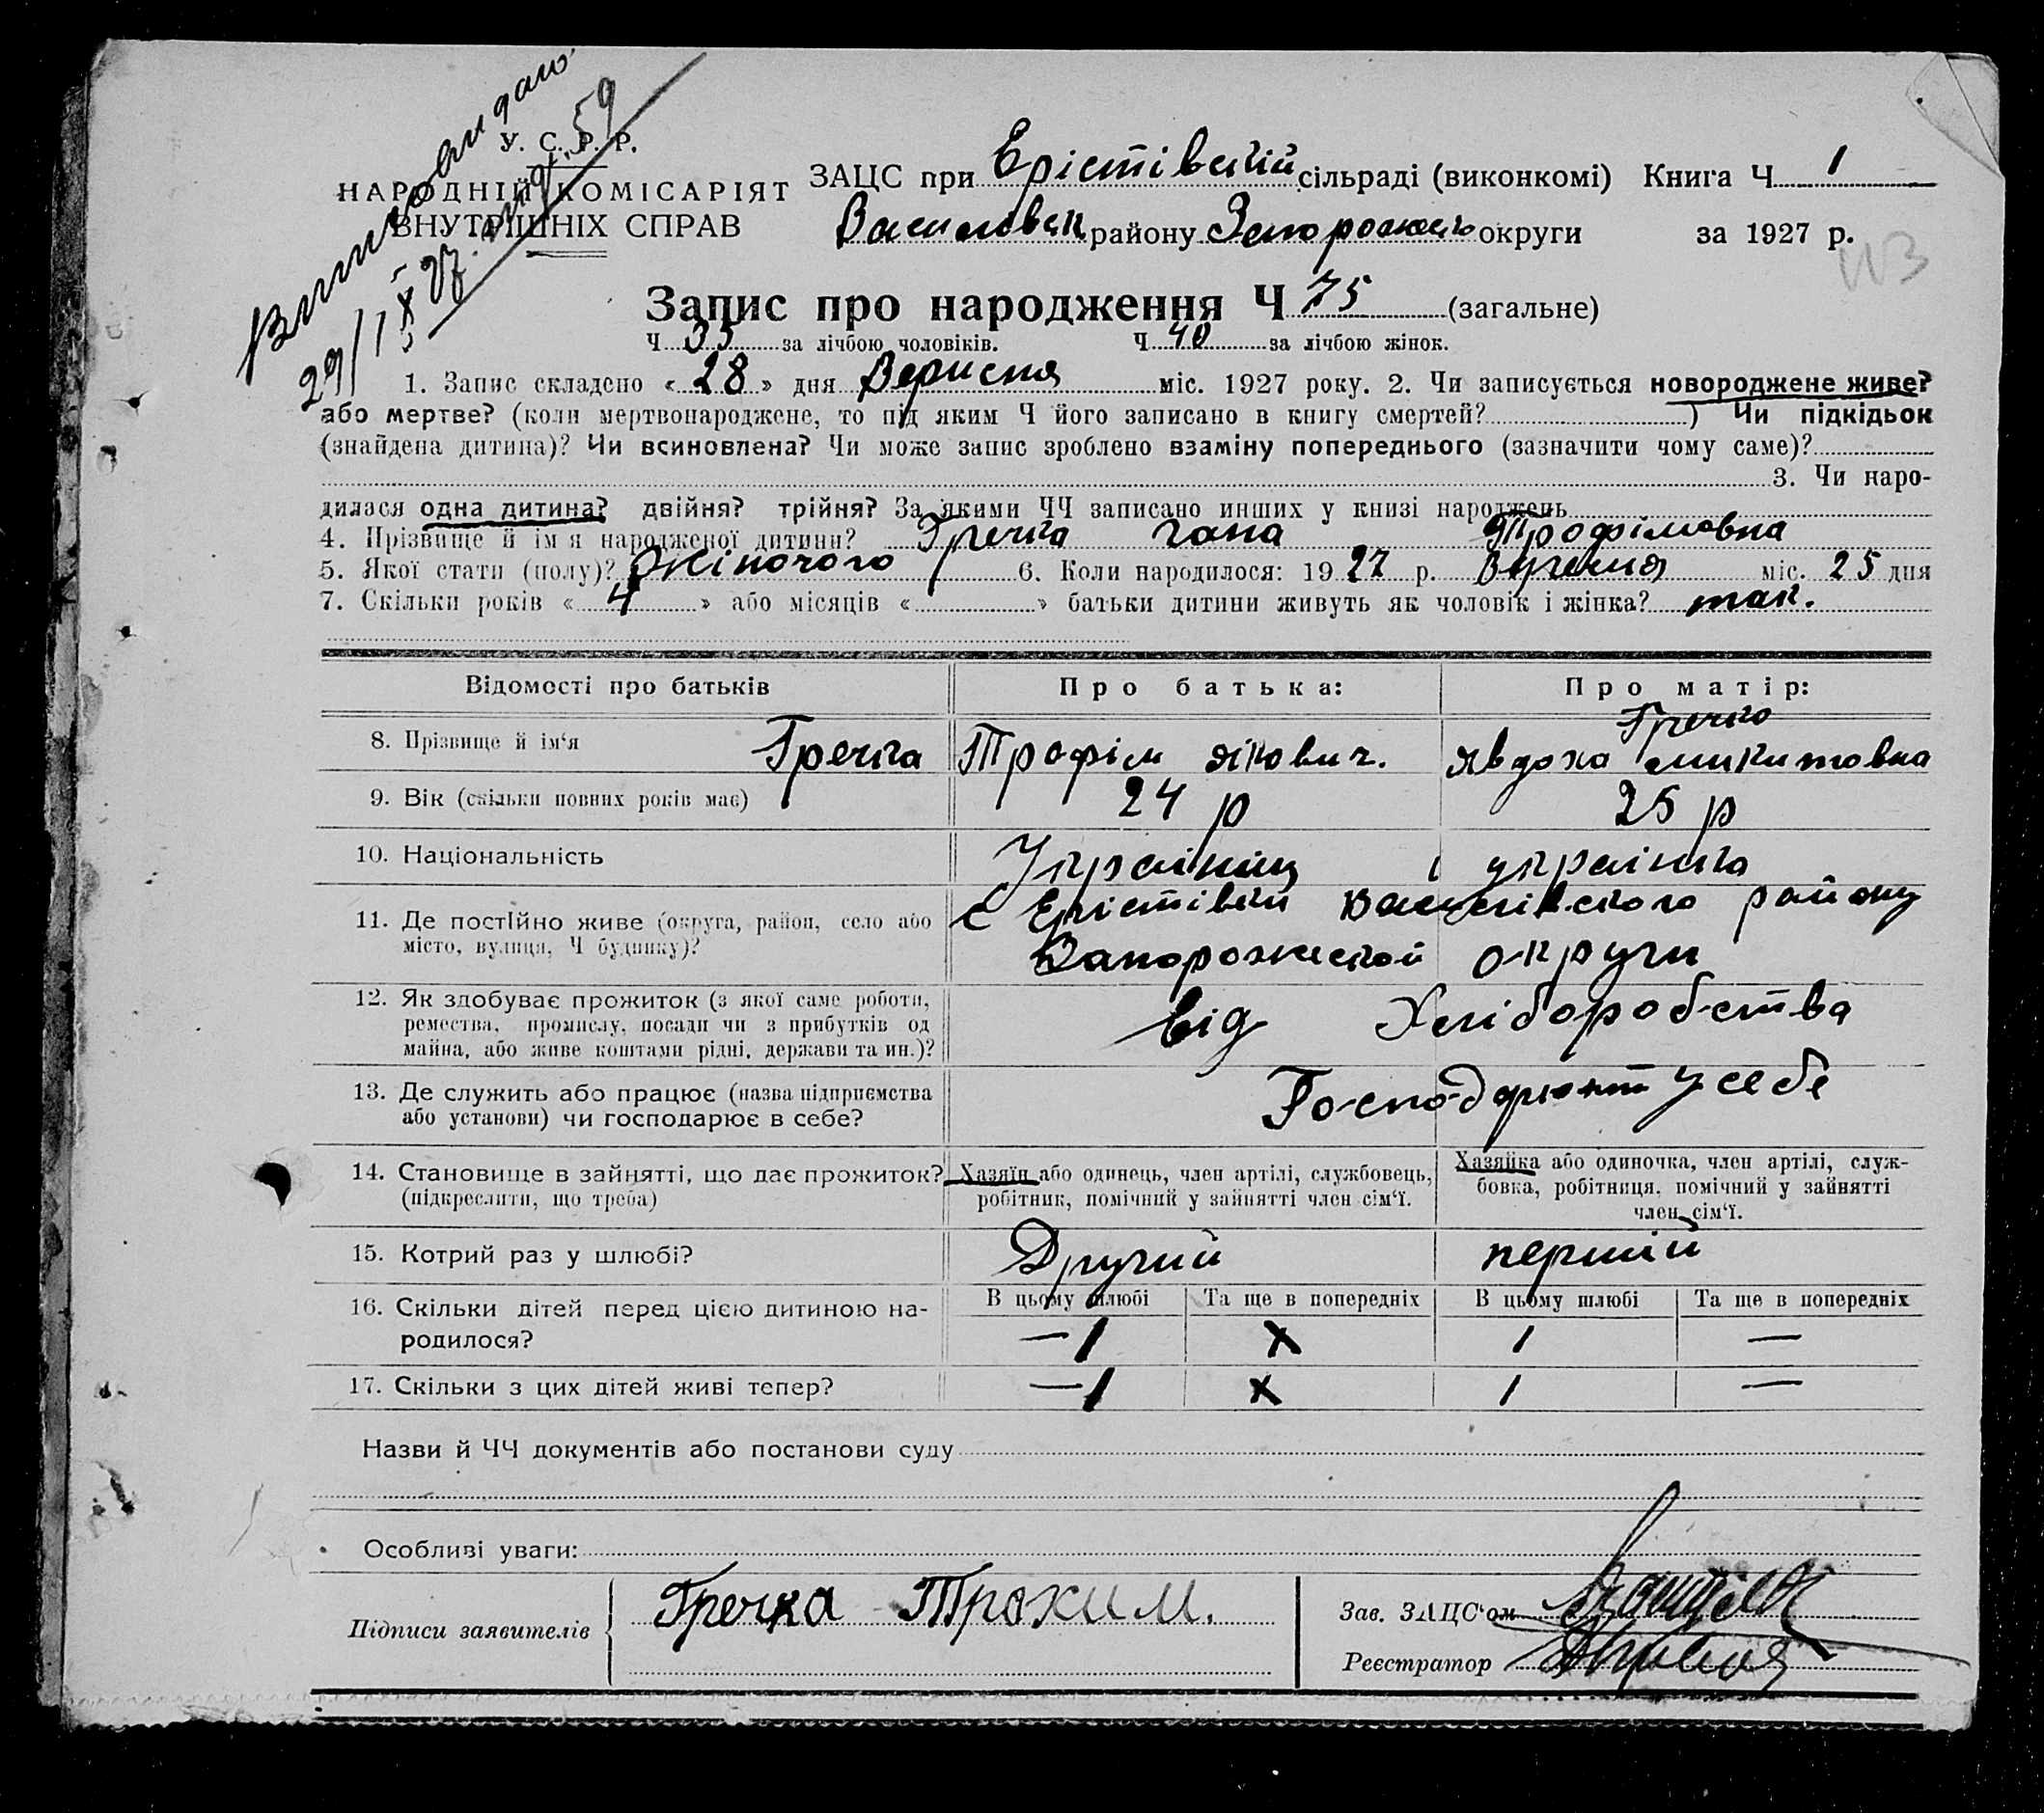 Випись видано
29/IX 27 № 59
У. С. Р. Р.
НАРОДНІЙ КОМІСАРІЯТ
ВНУТРІШНІХ СПРАВ
ЗАЦС при Ерістівській сільраді (виконкомі) Книга Ч 1
Василівск району Запорожсько округи за 1927 р.
Запис про народження Ч 75 (загальне)
Ч 35 за лічбою чоловіків. Ч 40 за лічбою жінок.
1. Запис складено « 28 » дня Вересня міс. 1927 року. 2. Чи записується новороджене живе?
або мертве? (коли мертвонароджене, то під яким Ч його записано в книгу смертей? ) Чи підкідьок
(знайдена дитина)? Чи всиновлена? Чи може запис зроблено взаміну попереднього (зазначити чому саме)?
3. Чи наро-
дилася одна дитина? двійня? трійня? За якими ЧЧ записано инших у книзі народжень
4. Прізвище й ім'я народженої дитини? Гречка гана Трофімовна
5. Якої стати (полу)? Жіночого 6. Коли народилося: 19 27 р. Вересня міс. 25 дня
7. Скільки років « 4 » або місяців « » батьки дитини живуть як чоловік і жінка? так.
Відомості про батьків Про батька: Про матір:
Гречко
8. Прізвище й ім'я Гречка Трофім Явдоха микитовна
9. Вік (скільки повних років має) 24 р 25 р
10. Національність Українц українка
11. Де постійно живе (округа, район, село або С Ерістівки Василівского району
місто, вулиця, Ч будинку)? Запорожской округи
12. Як здобуває прожиток (з якої саме роботи, від Хліборобства
ремества, промислу, посади чи з прибутків од
майна, або живе коштами рідні, держави та ин.)?
13. Де служить або працює (назва підприємства Господарюют у себе
або установи) чи господарює в себе?
14. Становище в зайнятті, що дає прожиток? Хазяїн або одинець, член артілі, службовець, Хазяйка або одиночка, член артілі, служ-
(підкреслити, що треба) робітник, помічний у зайнятті член сім'ї. бовка, робітниця, помічний у зайнятті
член сім'ї.
15. Котрий раз у шлюбі? Другий перший
16. Скільки дітей перед цією дитиною на- В цьому шлюбі Та ще в попередніх В цьому шлюбі Та ще в попередніх
родилося? —1 х 1 —
17. Скільки з цих дітей живі тепер? —1 х 1 —
Назви й ЧЧ документів або постанови суду
Особливі уваги:
Підписи заявителів Гречка Трохим. Зав. ЗАЦС'ом
Реєстратор